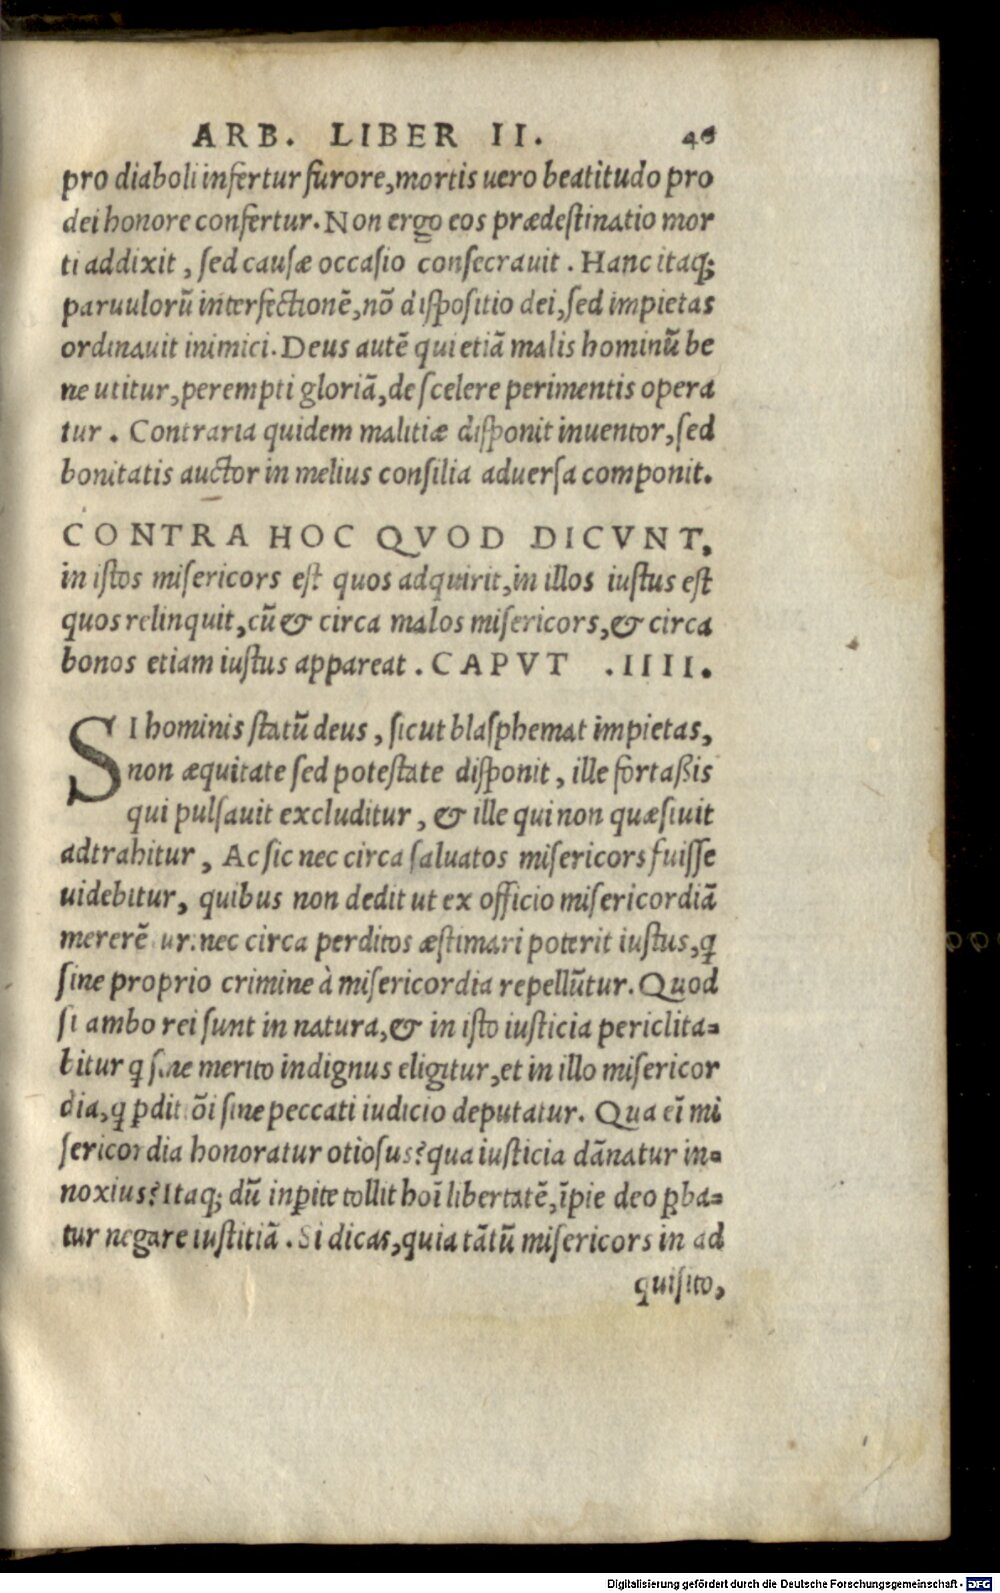 ARB. LIBER II. 46
pro diaboli infertur furore, mortis uero beatitudo pro
dei honore confertur. Non ergo eos prædestinatio mor
ti addixit, sed causæ occasio consecrauit. Hanc itaq;
paruulorũ interfectionẽ, nõ dispositio dei, sed impietas
ordinauit inimici. Deus autẽ qui etiã malis hominũ be
ne utitur, perempti gloriã, de scelere perimentis opera
tur. Contraria quidem malitiæ disponit inuentor, sed
bonitatis auctor in melius consilia aduersa componit.
CONTRA HOC QVOD DICVNT,
in istos misericors est quos adquirit, in illos iustus est
quos relinquit, cũ & circa malos misericors, & circa
bonos etiam iustus appareat. CAPVT .IIII.
SI hominis statũ deus, sicut blasphemat impietas,
non æquitate sed potestate disponit, ille fortaßis
qui pulsauit excluditur, & ille qui non quæsiuit
adtrahitur, Ac sic nec circa saluatos misericors fuisse
uidebitur, quibus non dedit ut ex officio misericordiã
mererẽ ur. nec circa perditos æstimari poterit iustus, q
sine proprio crimine à misericordia repellũtur. Quod
si ambo rei sunt in natura, & in isto iusticia periclita=
bitur q sine merito indignus eligitur, et in illo misericor
dia, q pdit õi sine peccati iudicio deputatur. Qua eĩ mi
sericordia honoratur otiosus? qua iusticia dãnatur in=
noxius? Itaq; dũ inpite tollit hoĩ libertatẽ, ĩpie deo pba=
tur negare iustitiã. Si dicas, quia tãtũ misericors in ad
quisito,
Digitalisierung gefördert durch die Deutsche Forschungsgemeinschaft - DFG